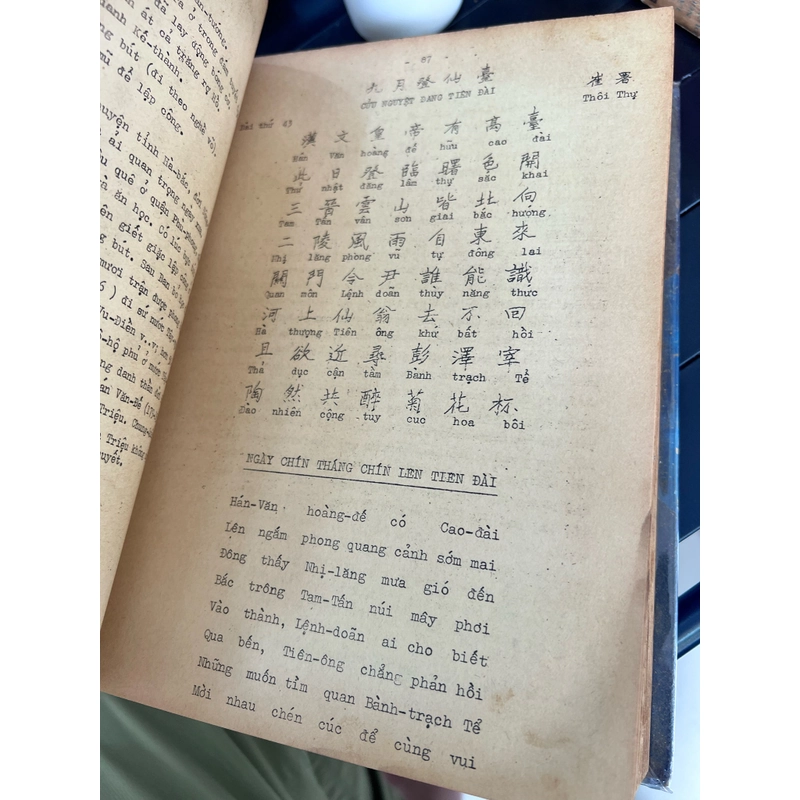 ở trong đám
đã lay động
ất cả trăng rụ
lanh Kế-thành.
bút (đi theo nghề võ)
để lập công.
ải quan trọng
quê ở quận
ăn học. Có lúc
giết giặc lập công
bút. San Ban
trận được
) đi sứ nước
Vu-Điền v..v.
phủ ở mươn
danh thần
Văn-Đế
Triệu. Chung
Triệu không
- 87 -
九月登仙臺
崔署
CỬU NGUYỆT ĐANG TIÊN ĐÀI
Thôi Thự
Bài thứ 43
漢文皇帝有高臺
Hán Văn hoàng đế hữu cao đài
此日登臨曙色開
Thử nhật đăng lâm thự sắc khai
三晉雲山皆北向
Tam Tấn vân sơn giai bắc hướng
二陵風雨自東來
Nhị lăng phong vũ tự đông lai
關門令尹誰能識
Quan môn Lệnh doãn thùy năng thức
河上仙翁去不回
Hà thượng Tiên ông khứ bất hồi
且欲近尋彭澤宰
Thả dục cận tầm Bành trạch Tể
陶然共醉菊花杯
Đào nhiên cộng tuy cuc hoa bôi
NGÀY CHÍN THÁNG CHÍN LÊN TIÊN ĐÀI
Hán-Văn hoàng-đế có Cao-đài
Lên ngắm phong quang cảnh sớm mai
Đông thấy Nhị-lăng mưa gió đến
Bắc trông Tam-Tấn núi mây phơi
Vào thành, Lệnh-doãn ai cho biết
Qua bến, Tiên-ông chẳng phản hồi
Những muốn tìm quan Bành-trạch Tể
Mời nhau chén cúc để cùng vui